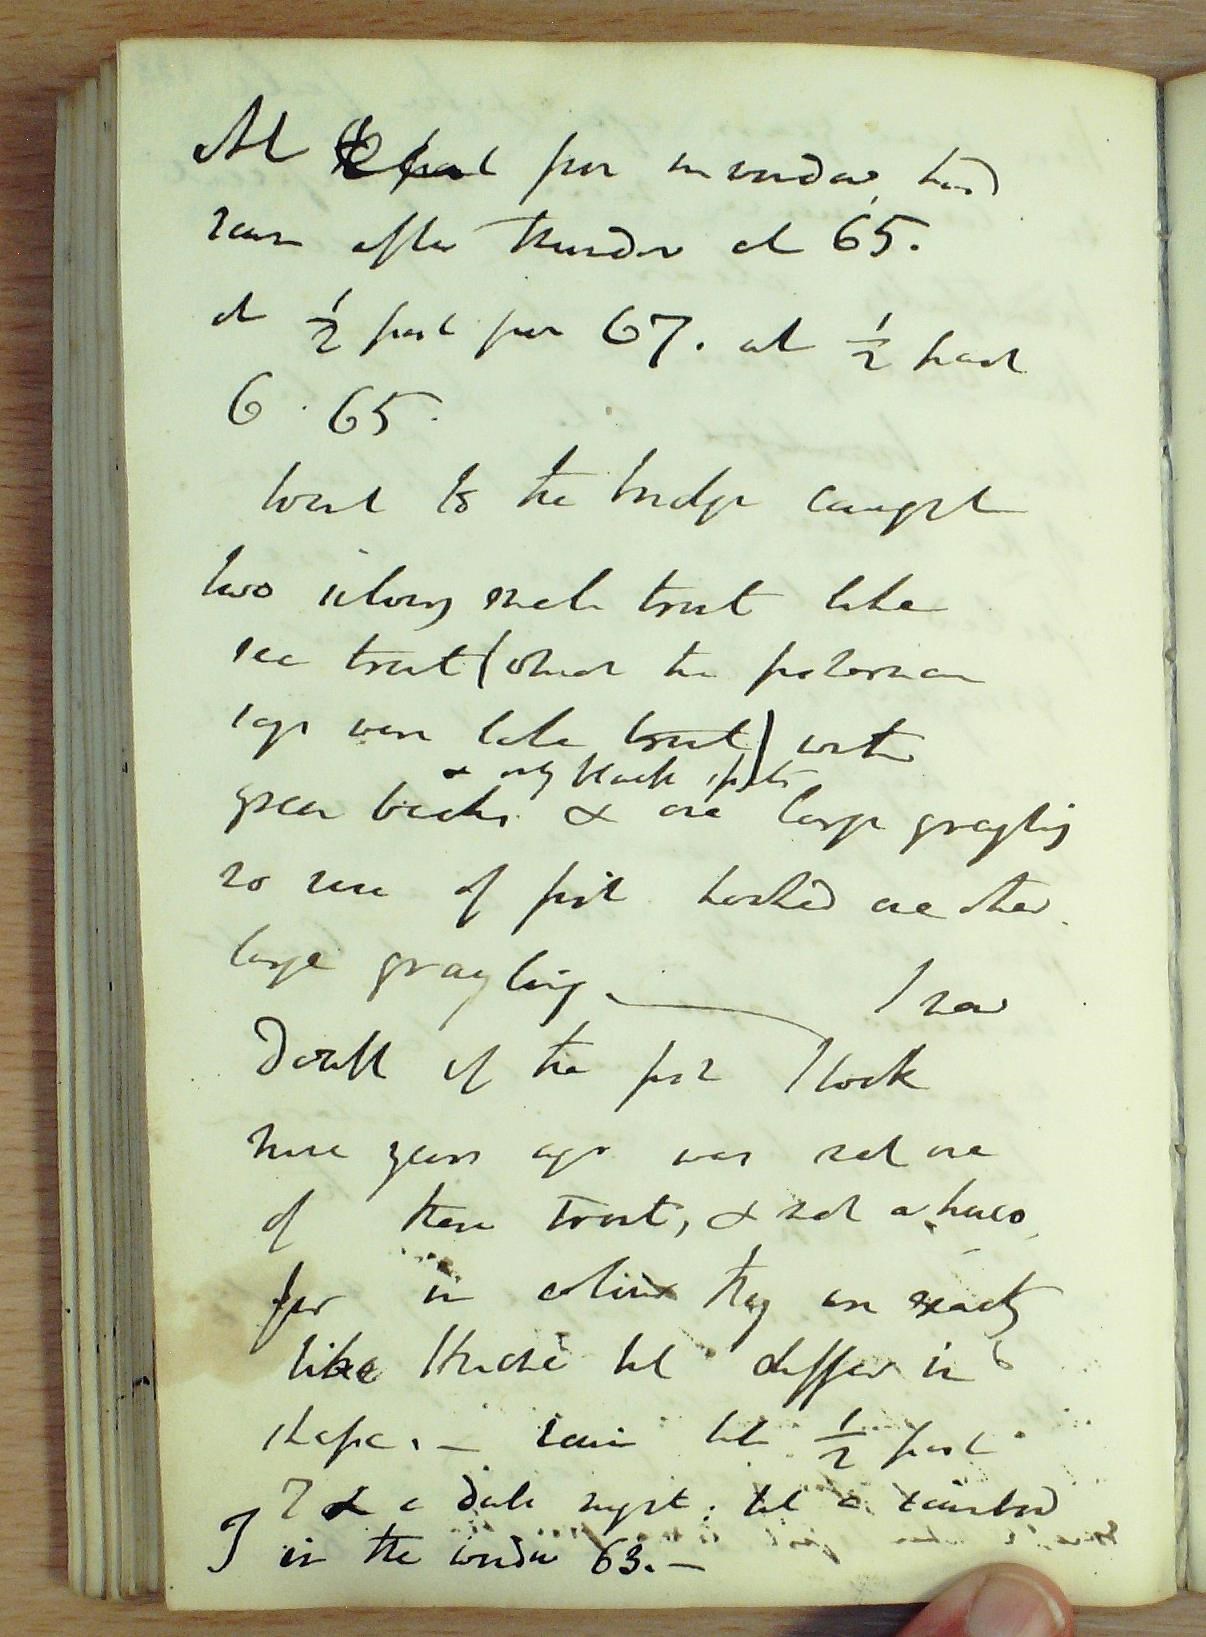 At four in window, hard
rain after thunder at 65.
at ½ past four 67. at ½ past
6 . 65.
Went to the bridge caught
two silvery male trout like
sea trout (which the fisherman
says were lake trout) with
& only black spots
green backs. & one large grayling
no run of fish hooked one other
large grayling. — I now
doubt if the fish I took
nine years ago was not one
of these trout, & not a hucho
for in colour they are exactly
like Huchs but differ in
shape. — rain till ½ past
7 & a dark night: but a rainbow
in the window 63. —